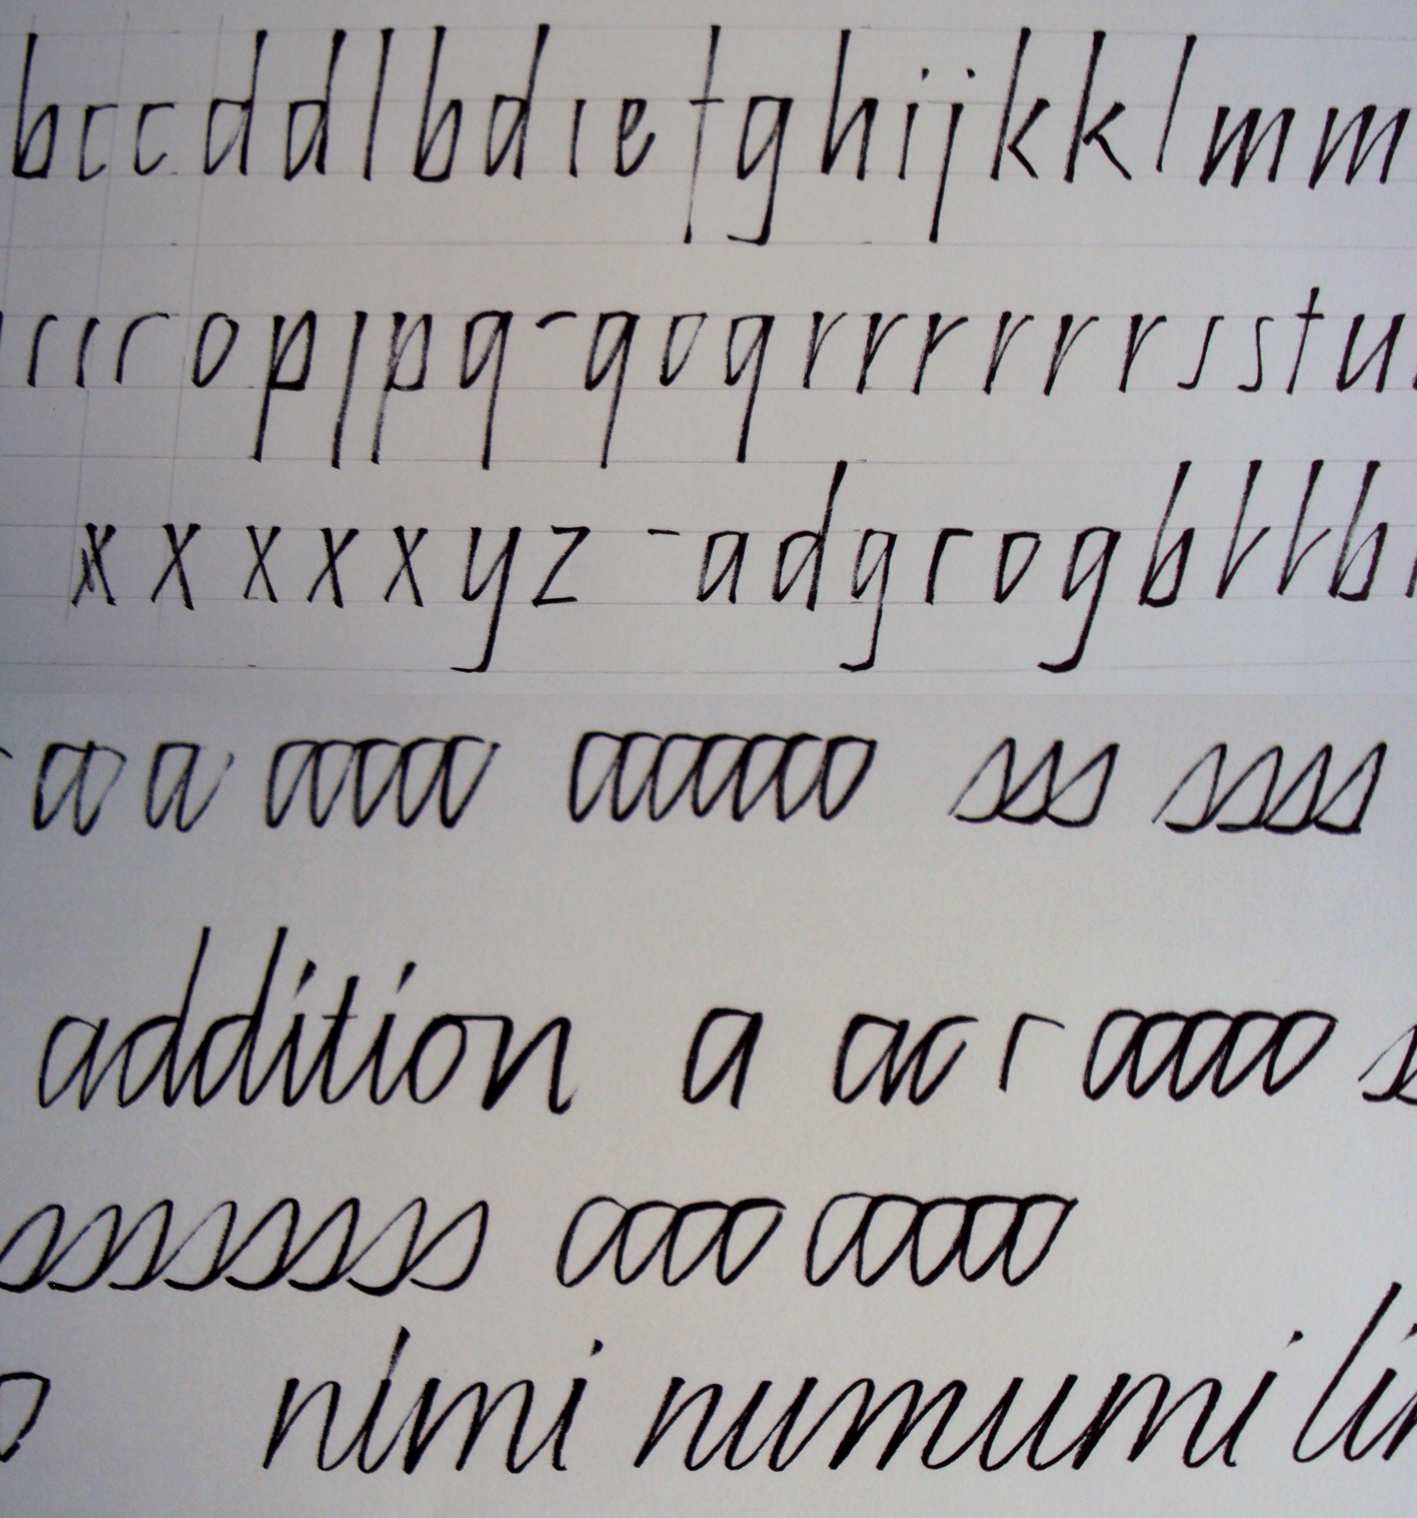 bccddlbdiefghijkklmm
rırropjpq-qoqrrrrrrsstu
xxxxxyz -adgrogb
aa a aaaa aaaaao sss ssss
addition a acr aaaao s
ssssssss aaao aaaao
o nimi numumi lin